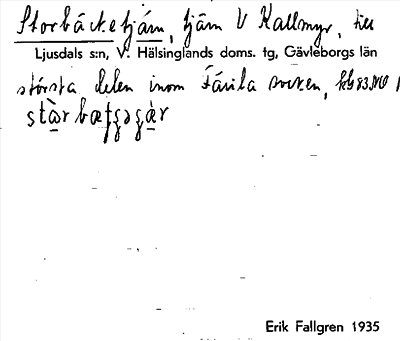 Storbäcketjärn, tjärn V Kallmyr, till
Ljusdals s:n, V. Hälsinglands doms. tg, Gävleborgs län
största delen inom Färila socken,
Erik Fallgren 1935